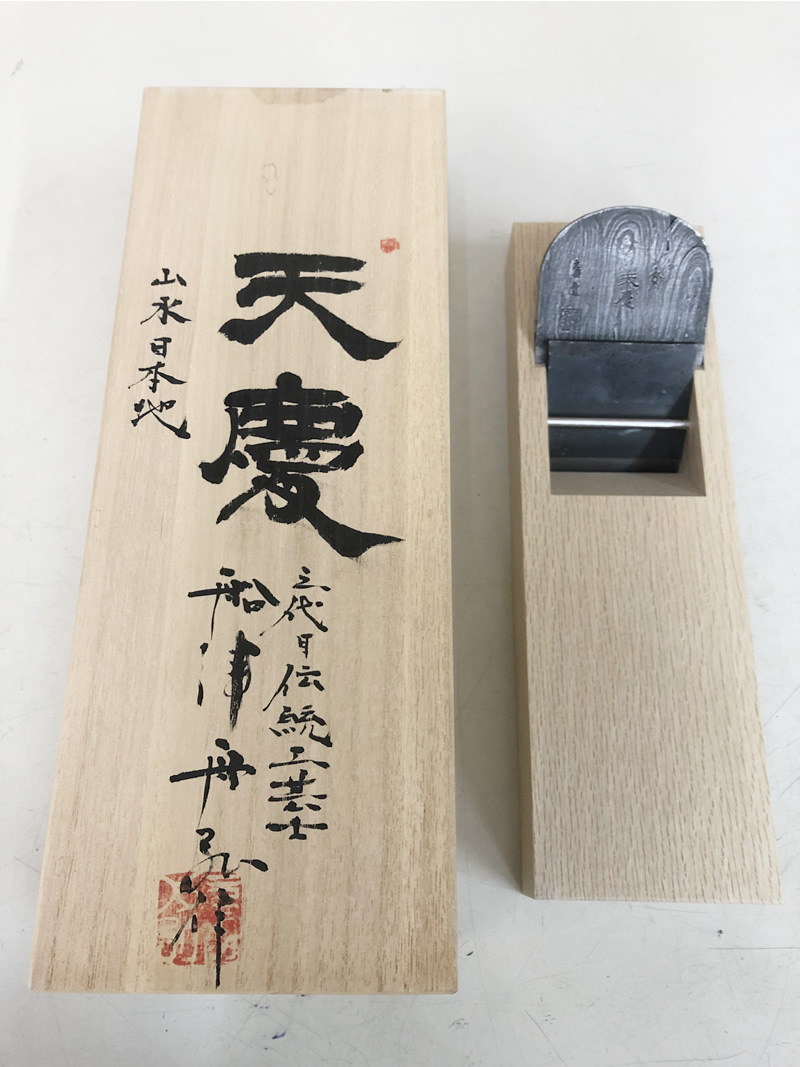 天慶
三代目伝統工芸士
船津舟弘作
山水日本地
天慶